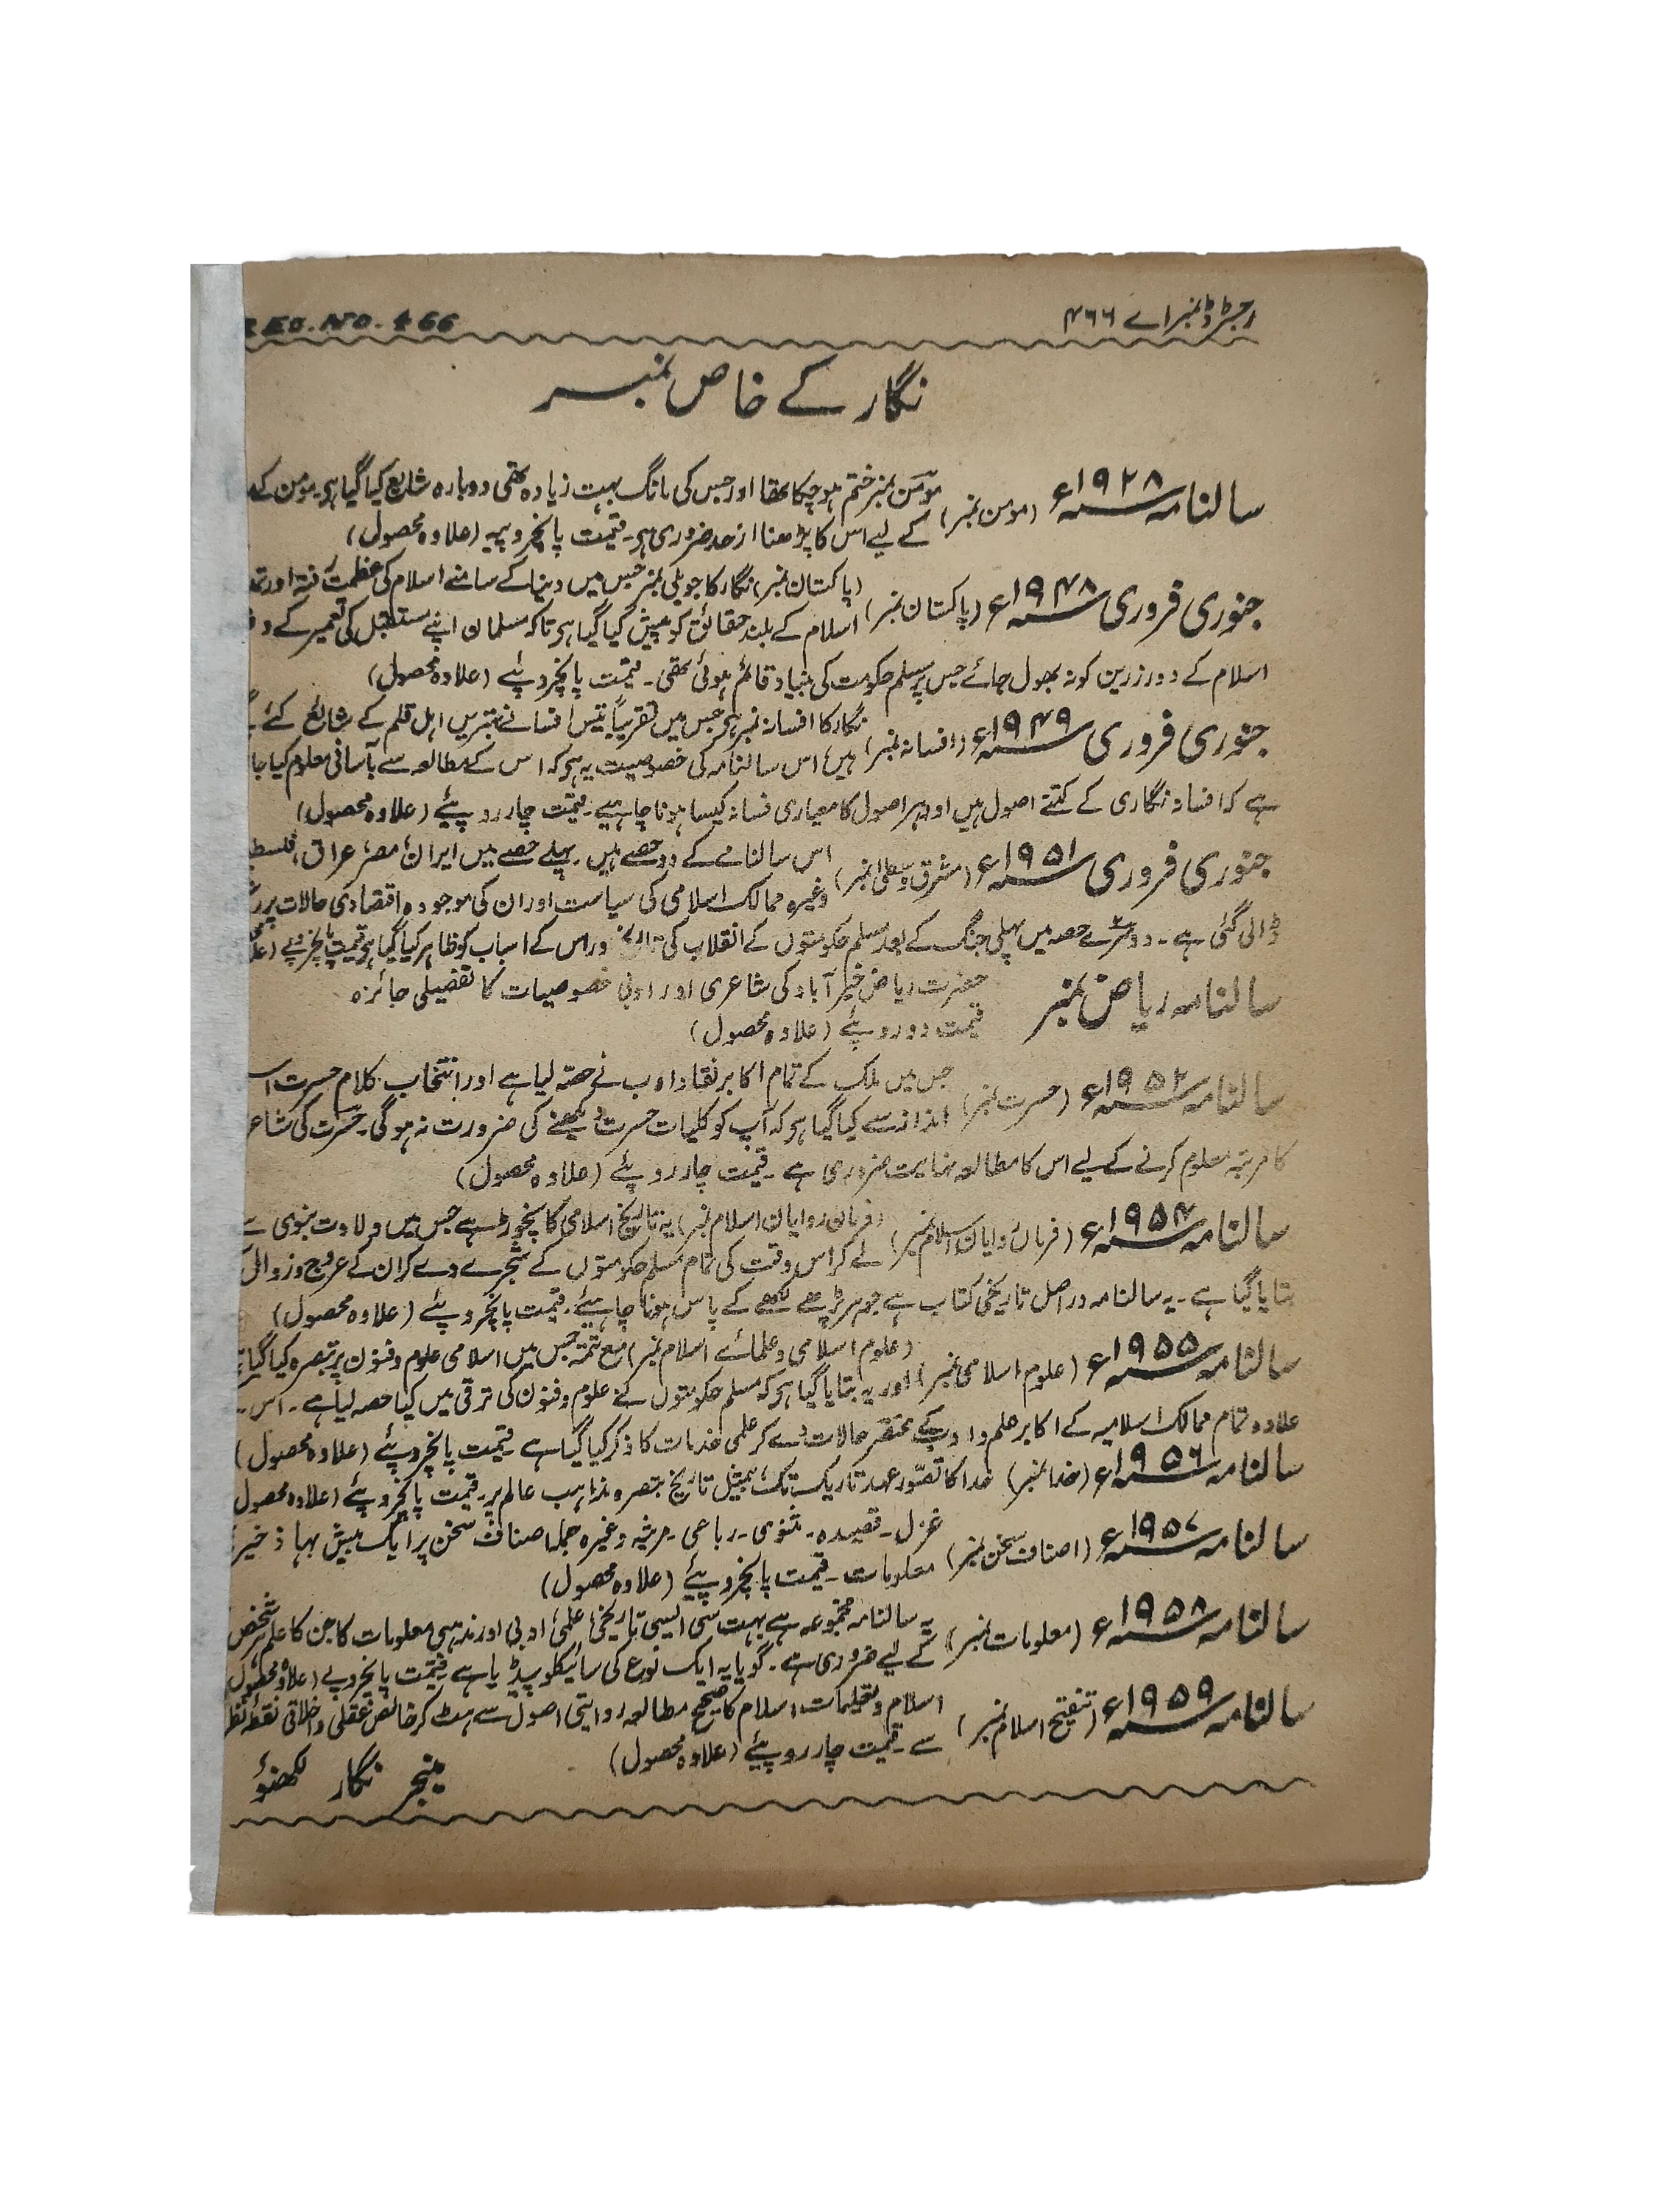 رجسٹرڈ نمبر اے ۴۶۶
REG. NO. A 66
نگار کے خاص نمبر
سالنامہ ۱۹۲۸ء (مومن نمبر) مومن نمبر ختم ہوچکا تھا اور جس کی مانگ بہت زیادہ تھی دوبارہ شایع کیا گیا ہے۔ مومن کے
کے لیے اس کا پڑھنا ازحد ضروری ہے۔ قیمت پانچروپیہ (علاوہ محصول)
جنوری فروری ۱۹۴۸ء (پاکستان نمبر) (پاکستان نمبر) نگار کا جوبلی نمبر جس میں دنیا کے سامنے اسلام کی عظمت رفتہ اور
اسلام کے بلند حقائق کو پیش کیا گیا ہے تاکہ مسلمان اپنے مستقبل کی تعمیر کے
اسلام کے دور زرین کو نہ بھول جائے جس پر مسلم حکومت کی بنیاد قائم ہوئی تھی۔ قیمت پانچروپئے (علاوہ محصول)
جنوری فروری ۱۹۴۹ء (افسانہ نمبر) نگار کا افسانہ نمبر ہے جس میں تقریباً تیس افسانے بہترین اہل قلم کے شایع کئے
ہیں، اس سالنامہ کی خصوصیت یہ ہے کہ اس کے مطالعہ سے بآسانی معلوم کیا جا
ہے کہ افسانہ نگاری کے کتنے اصول ہیں اور ہر اصول کا معیاری فسانہ کیسا ہونا چاہیے۔ قیمت چار روپیئے (علاوہ محصول)
جنوری فروری ۱۹۵۱ء (مشرق وسطیٰ نمبر) اس سالنامے کے دو حصے ہیں۔ پہلے حصے میں ایران، مصر، عراق،
وغیرہ ممالک اسلامی کی سیاست اور ان کی موجودہ اقتصادی حالات پر
ڈالی گئی ہے۔ دوسرے حصہ میں پہلی جنگ کے بعد مسلم حکومتوں کے انقلاب کی تاریخ اور اس کے اسباب کو ظاہر کیا گیا ہے قیمت پانچروپئے
سالنامہ ریاض نمبر حضرت ریاض خیرآباد کی شاعری اور ادبی خصوصیات کا تفصیلی جائزہ
قیمت دو روپئے (علاوہ محصول)
سالنامہ ۱۹۵۲ء (حسرت نمبر) جس میں ملک کے تمام اکابر نقاد ادب نے حصہ لیا ہے اور انتخاب کلام حسرت
انداز سے کیا گیا ہے کہ آپ کو کلیات حسرت دیکھنے کی ضرورت نہ ہوگی۔ حسرت کی
کا مرتبہ معلوم کرنے کے لیے اس کا مطالعہ نہایت ضروری ہے۔ قیمت چار روپئے (علاوہ محصول)
سالنامہ ۱۹۵۴ء (فرماں روایان اسلام نمبر) (فرماں روایان اسلام نمبر) یہ تاریخ اسلامی کا نچوڑ ہے جس میں ولادت نبوی سے
لے کر اس وقت کی تمام مسلم حکومتوں کے شجرے دے کر ان کے عروج و زوال
بتایا گیا ہے۔ یہ سالنامہ دراصل تاریخی کتاب ہے جو ہر پڑھے لکھے کے پاس ہونا چاہیئے۔ قیمت پانچروپئے (علاوہ محصول)
سالنامہ ۱۹۵۵ء (علوم اسلامی نمبر) (علوم اسلامی و علمائے اسلام نمبر) مع تتمہ جس میں اسلامی علوم و فنون پر تبصرہ کیا گیا
اور یہ بتایا گیا ہے کہ مسلم حکومتوں نے علوم و فنون کی ترقی میں کیا حصہ لیا ہے۔ اس
علاوہ تمام ممالک اسلامیہ کے اکابر علم و ادب کے مختصر حالات دے کر علمی خدمات کا ذکر کیا گیا ہے۔ قیمت پانچروپئے (علاوہ محصول)
سالنامہ ۱۹۵۶ء (خدا نمبر) خدا کا تصور عہد تاریک تک، بمثیل تاریخ تبصرہ مذاہب عالم پر۔ قیمت پانچروپئے (علاوہ محصول
سالنامہ ۱۹۵۷ء (اصناف سخن نمبر) غزل۔ قصیدہ۔ مثنوی۔ رباعی۔ مرثیہ وغیرہ جملہ اصناف سخن پر ایک بیش بہا ذخیرہ
معلومات۔ قیمت پانچروپیئے (علاوہ محصول)
سالنامہ ۱۹۵۸ء (معلومات نمبر) یہ سالنامہ مجموعہ ہے بہت سی ایسی تاریخی، علمی، ادبی اور مذہبی معلومات کا جن کا علم ہر شخص
کے لیے ضروری ہے۔ گویا یہ ایک نوع کی سائیکلوپیڈیا ہے۔ قیمت پانچروپے (علاوہ محصول
سالنامہ ۱۹۵۹ء (تنقیح اسلام نمبر) اسلام و تعلیمات اسلام کا صحیح مطالعہ روایتی اصول سے ہٹ کر خالص عقلی و اخلاقی نقطۂ نظر
سے۔ قیمت چار روپیئے (علاوہ محصول)
منیجر نگار لکھنؤ